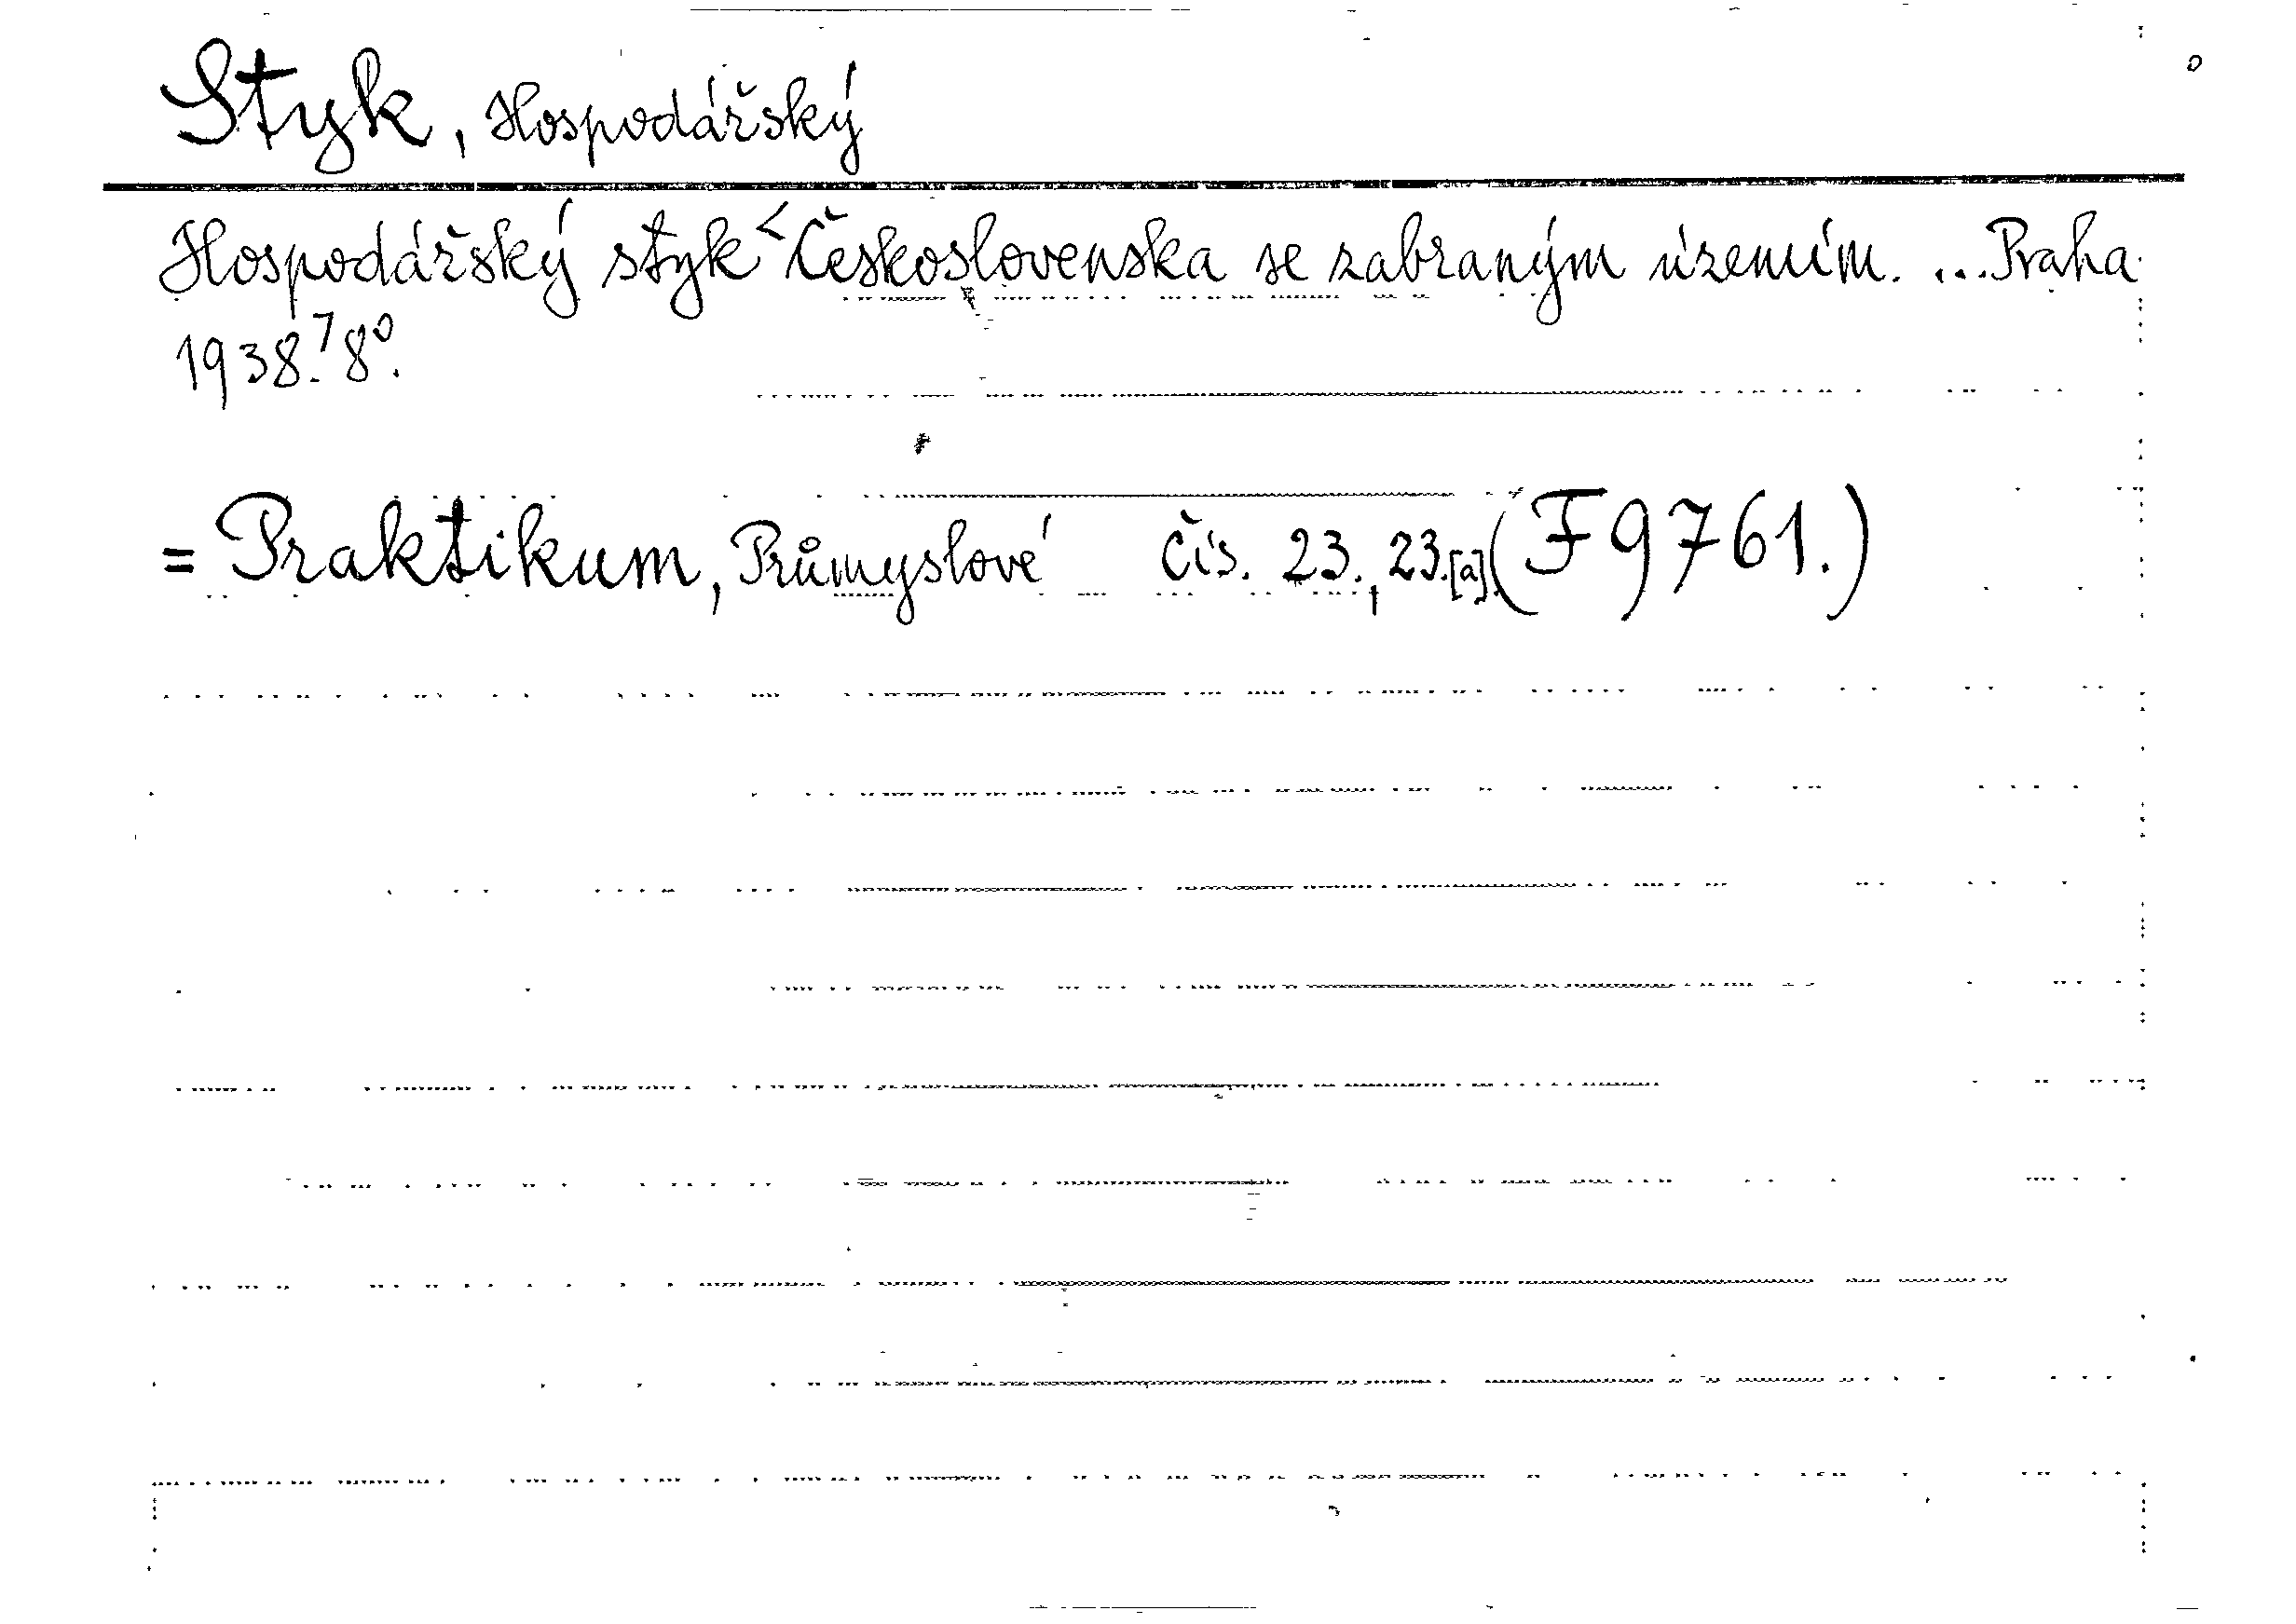 Styk, Hospodářský
Hospodářský styk < Československa se zabraným územím. ... Praha
1938.7 8°.
= Praktikum, Průmyslové čís. 23., 23.[a] (F 9761.)